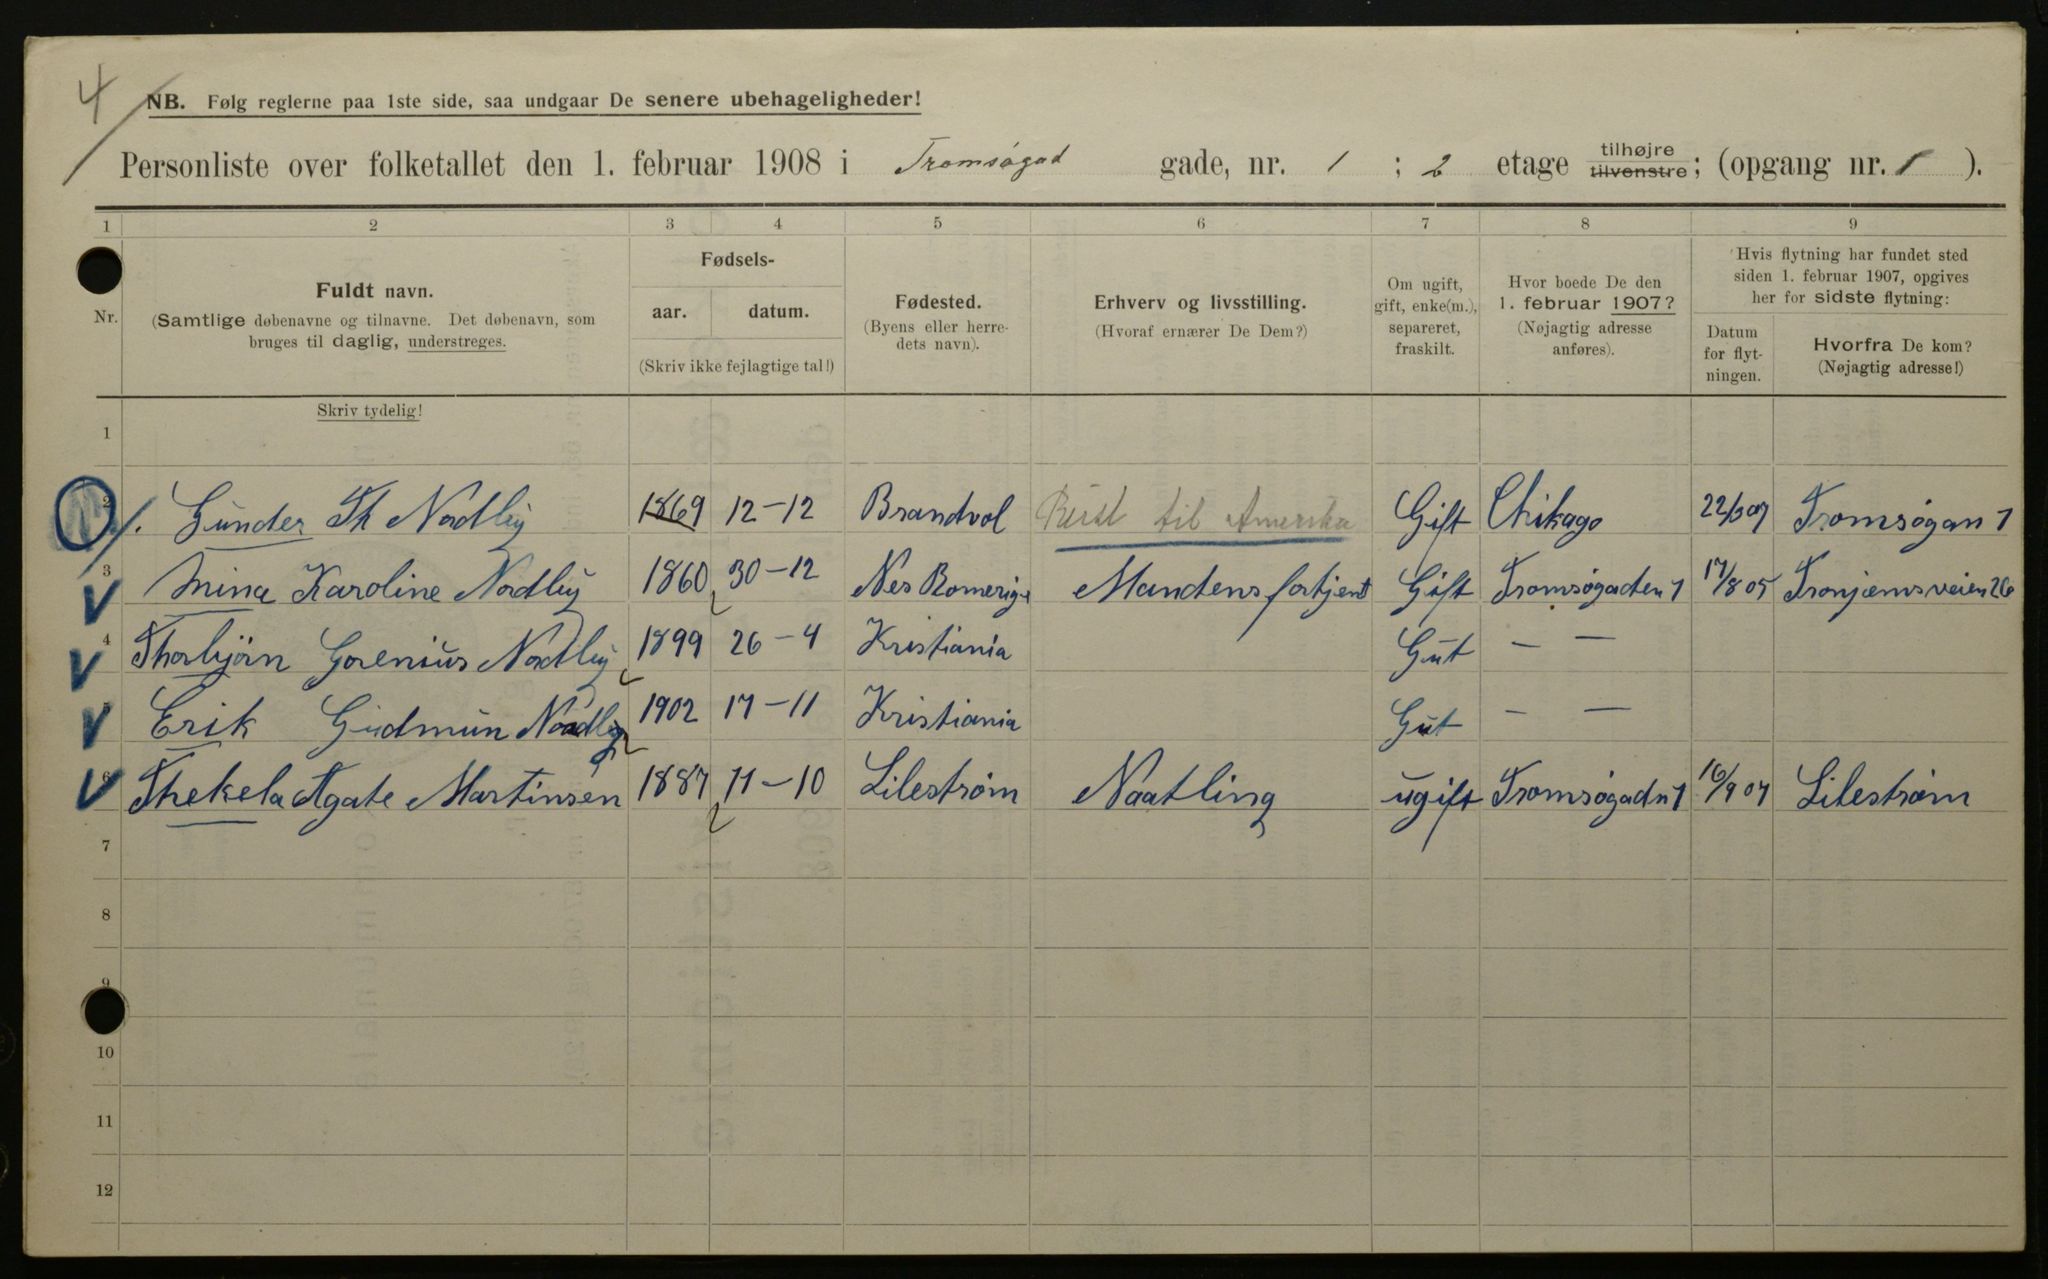 4
NB. Følg reglerne paa 1ste side, saa undgaar De senere ubehageligheder!
Personliste over folketallet den 1. februar 1908 i Tromsøgad gade, nr. 1 ; 2 etage tilhøjre tilvenstre ; (opgang nr. 1 ).
1 2 3 4 5 6 7 8 9
Nr.
Fuldt navn.
(Samtlige døbenavne og tilnavne. Det døbenavn, som
bruges til daglig, understreges.
Fødsels-
aar. datum.
(Skriv ikke fejlagtige tal!)
Fødested.
(Byens eller herre-
dets navn).
Erhverv og livsstilling.
(Hvoraf ernærer De Dem?)
Om ugift,
gift, enke(m.),
separeret,
fraskilt.
Hvor boede De den
1. februar 1907?
(Nøjagtig adresse
anføres).
Hvis flytning har fundet sted
siden 1. februar 1907, opgives
her for sidste flytning:
Datum
for flyt-
ningen.
Hvorfra De kom?
(Nøjagtig adresse!)
Skriv tydelig!
1
2 Gunder Th Nordby 1869 12-12 Brandvol Reist til Amerika Gift Chikago Tromsøgan 1
3 Mina Karoline Nordby 1860 30-12 Nes Romerige Mandens fortjenst Gift Tromsøgaden 1 17/8 05 Tronjemsveien 26
4 Thorbjørn Gorenius Nordby 1899 26-4 Kristiania Gut — —
5 Erik Gudmun Nordby 1902 17-11 Kristiania Gut — —
6 Thekela Agate Martinsen 1887 11-10 Lilestrøm Naatling ugift Tromsøgadn 1 16/9 07 Lilestrøm
7
8
9
10
11
12